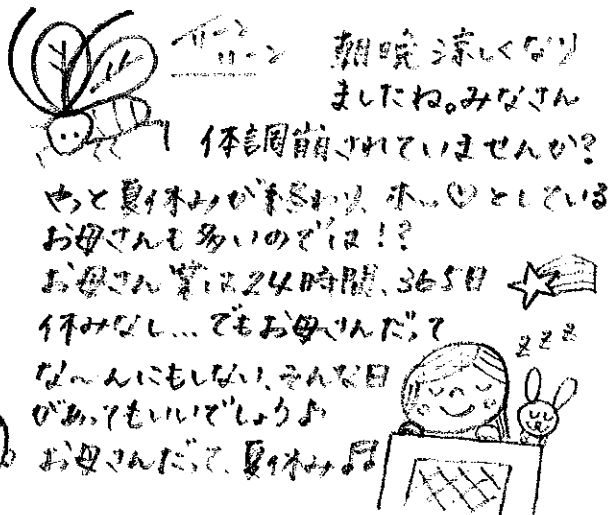 リーン
リーン
朝晩涼しくなり
ましたね。みなさん
体調崩されていませんか?
やっと夏休みが終わり、ホッ♡としている
お母さんも多いのでは!?
お母さん業は24時間、365日
休みなし...でもお母さんだって
な〜んにもしない、そんな日
があってもいいでしょう♪
zzz
お母さんだって、夏休み♫